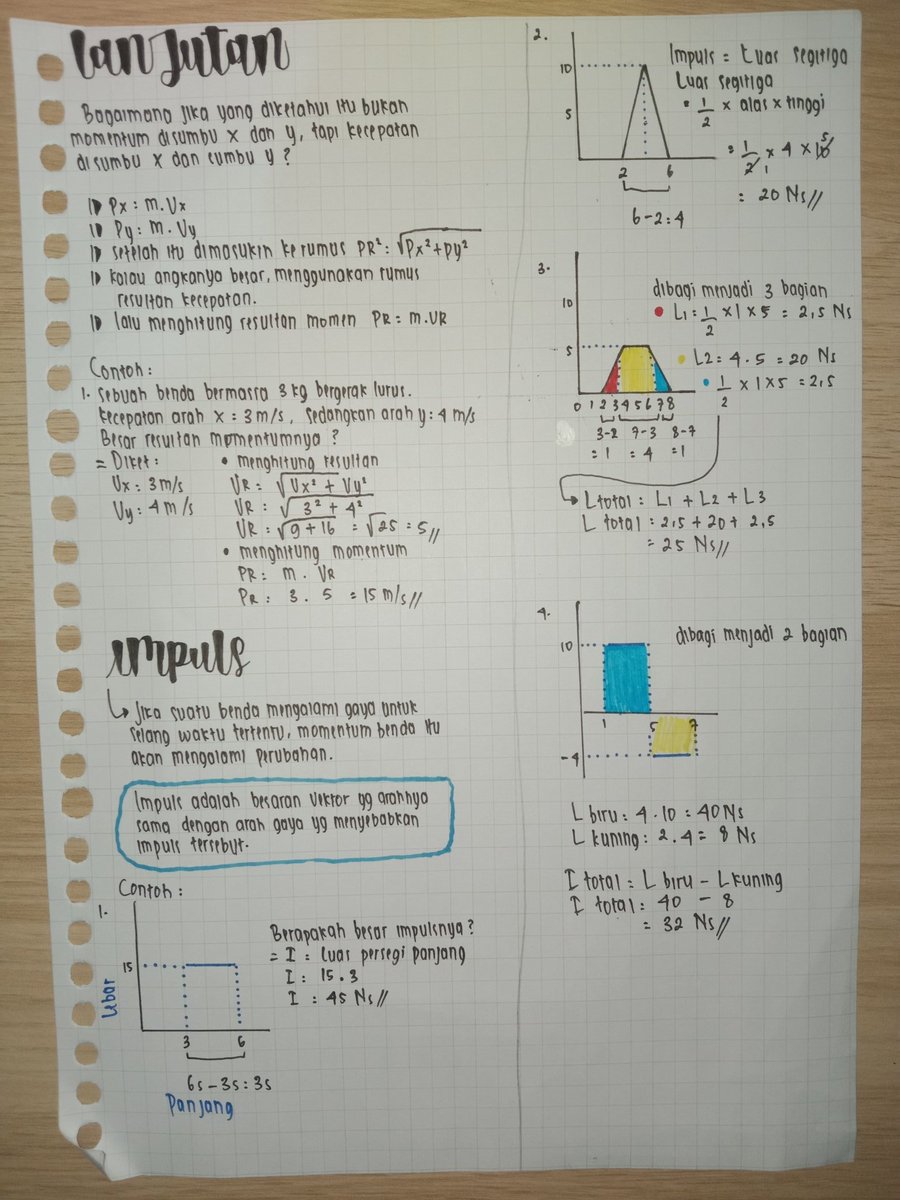 lanjutan
Bagaimana jika yang diketahui itu bukan
momentum disumbu x dan y, tapi kecepatan
di sumbu x dan sumbu y?
Px = m.Vx
Py = m.Vy
setelah itu dimasukin ke rumus PR² = √Px²+Py²
kalau angkanya besar, menggunakan rumus
resultan kecepatan.
lalu menghitung resultan momen PR = m.VR
Contoh:
1. Sebuah benda bermassa 3 kg bergerak lurus.
kecepatan arah x = 3 m/s, sedangkan arah y = 4 m/s
Besar resultan momentumnya?
= Diket:
Vx = 3 m/s
Vy = 4 m/s
• menghitung resultan
VR = √Vx² + Vy²
VR = √3² + 4²
VR = √9 + 16 = √25 = 5 //
• menghitung momentum
PR = m . VR
PR = 3 . 5 = 15 m/s //
impuls
↳ Jika suatu benda mengalami gaya untuk
selang waktu tertentu, momentum benda itu
akan mengalami perubahan.
Impuls adalah besaran vektor yg arahnya
sama dengan arah gaya yg menyebabkan
impuls tersebut.
Contoh:
1.
15
Lebar
3 6
6s - 3s = 3s
Panjang
Berapakah besar impulsnya?
= I = luas persegi panjang
I = 15.3
I = 45 Ns //
2.
10
5
2 6
6-2 = 4
Impuls = Luas segitiga
Luas segitiga
= 1/2 x alas x tinggi
= 1/2 x 4 x 10
1 5
= 20 Ns //
3.
10
5
0 1 2 3 4 5 6 7 8
3-2 7-3 8-7
= 1 = 4 = 1
dibagi menjadi 3 bagian
• L1 = 1/2 x 1 x 5 = 2,5 Ns
• L2 = 4 . 5 = 20 Ns
• 1/2 x 1 x 5 = 2,5
→ L total = L1 + L2 + L3
L total = 2,5 + 20 + 2,5
= 25 Ns //
4.
10
1 5 7
-4
dibagi menjadi 2 bagian
L biru = 4 . 10 = 40 Ns
L kuning = 2 . 4 = 8 Ns
I total = L biru - L kuning
I total = 40 - 8
= 32 Ns //